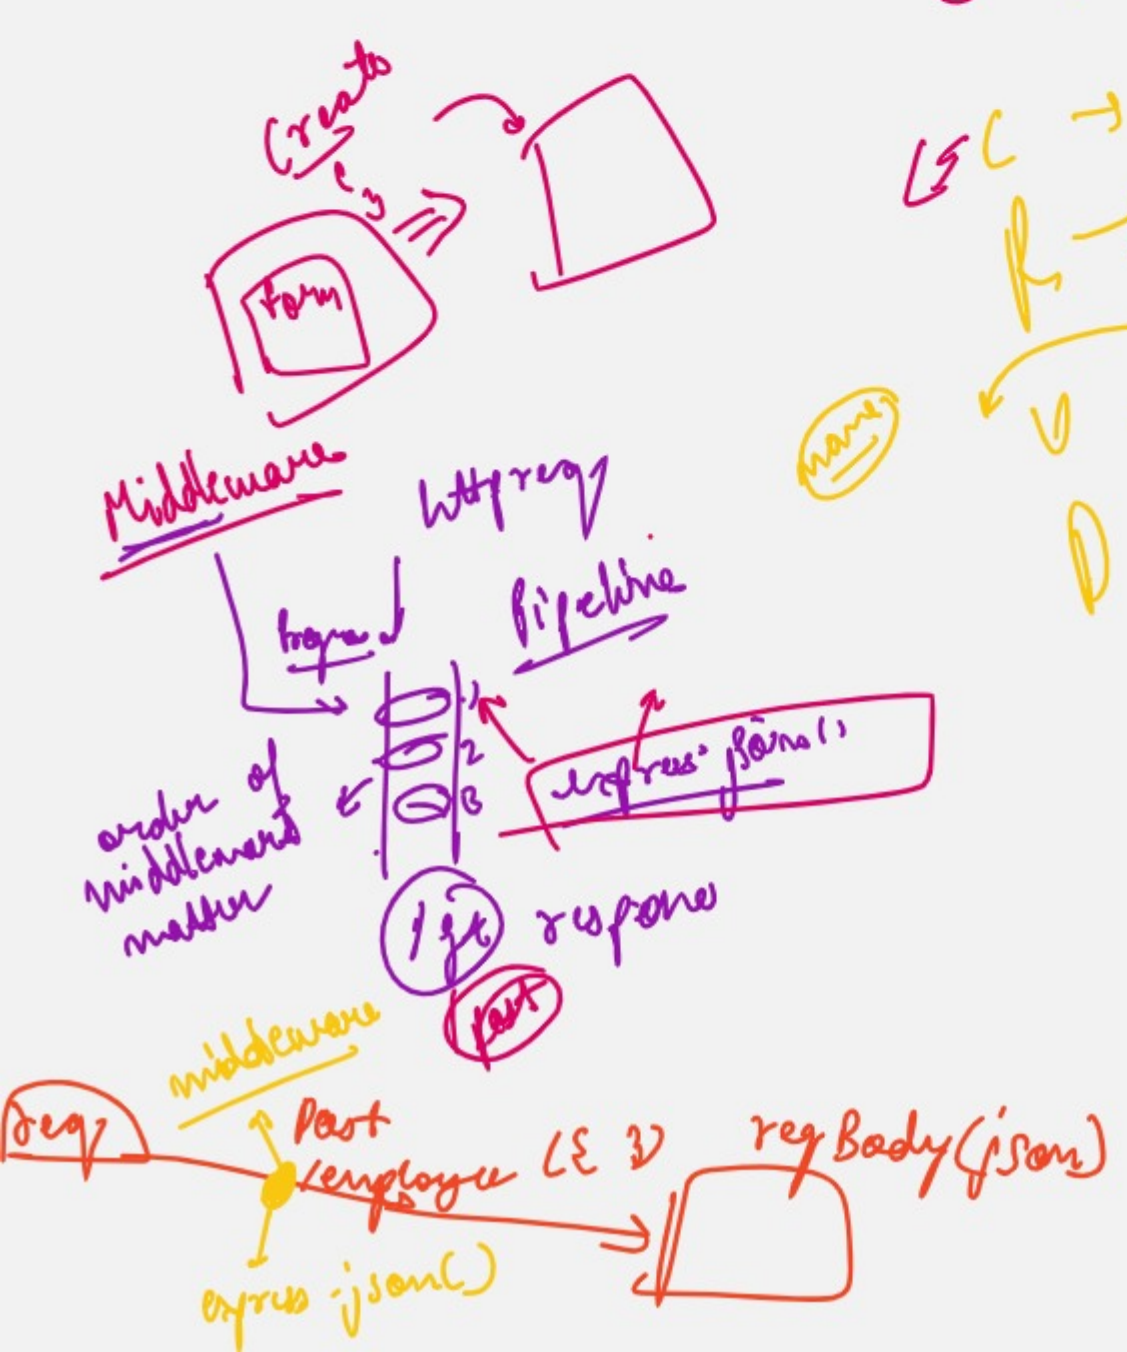 Create
{ }
form
C
R
U
D
name
Middleware
http req
Pipeline
1
2
3
express.json()
order of
middleware
matter
/get
response
post
middleware
req
Post
/employee ({ })
reqBody(json)
express.json()